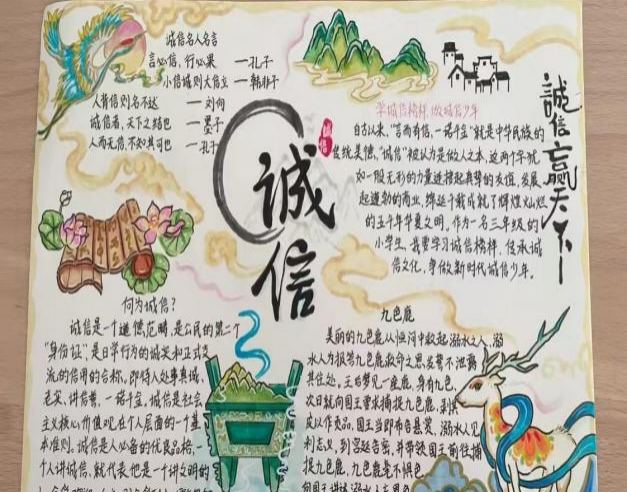 诚信名人名言
言必信，行必果 —孔子
小信诚则大信立 —韩非子
人背信则名不达 —刘向
诚信者，天下之结也 —墨子
人而无信，不知其可也 —孔子
诚信
诚信
誠信赢天下
学诚信榜样，做诚信少年
自古以来，"言而有信，一诺千金"就是中华民族的
传统美德，"诚信"被认为是做人之本，这两个字犹
如一股无形的力量连接起真挚的友谊，发展
起蓬勃的商业，绵延千载成就了辉煌灿烂
的五千年华夏文明。作为一名三年级的
小学生，我要学习诚信榜样，传承诚
信文化，争做新时代诚信少年。
何为诚信？
诚信是一个道德范畴，是公民的第二个
"身份证"，是日常行为的诚实和正式交
流的信用的合称。即待人处事真诚、
老实、讲信誉，一诺千金，诚信是社会
主义核心价值观在个人层面的一个基
本准则。诚信是人必备的优良品格，一
个人讲诚信，就代表他是一个讲文明的
九色鹿
美丽的九色鹿从恒河中救起溺水之人，溺
水人为报答九色鹿救命之恩发誓不泄露
其住处。王后梦见一鹿，身有九色，
次日就向国王要求捕捉九色鹿，剥其
皮以作衣品。国王当即布告悬赏，溺水人见
利忘义，到宫廷告密，并带领国王前往捕
捉九色鹿，九色鹿毫不惧色
向国王讲述溺水人忘恩